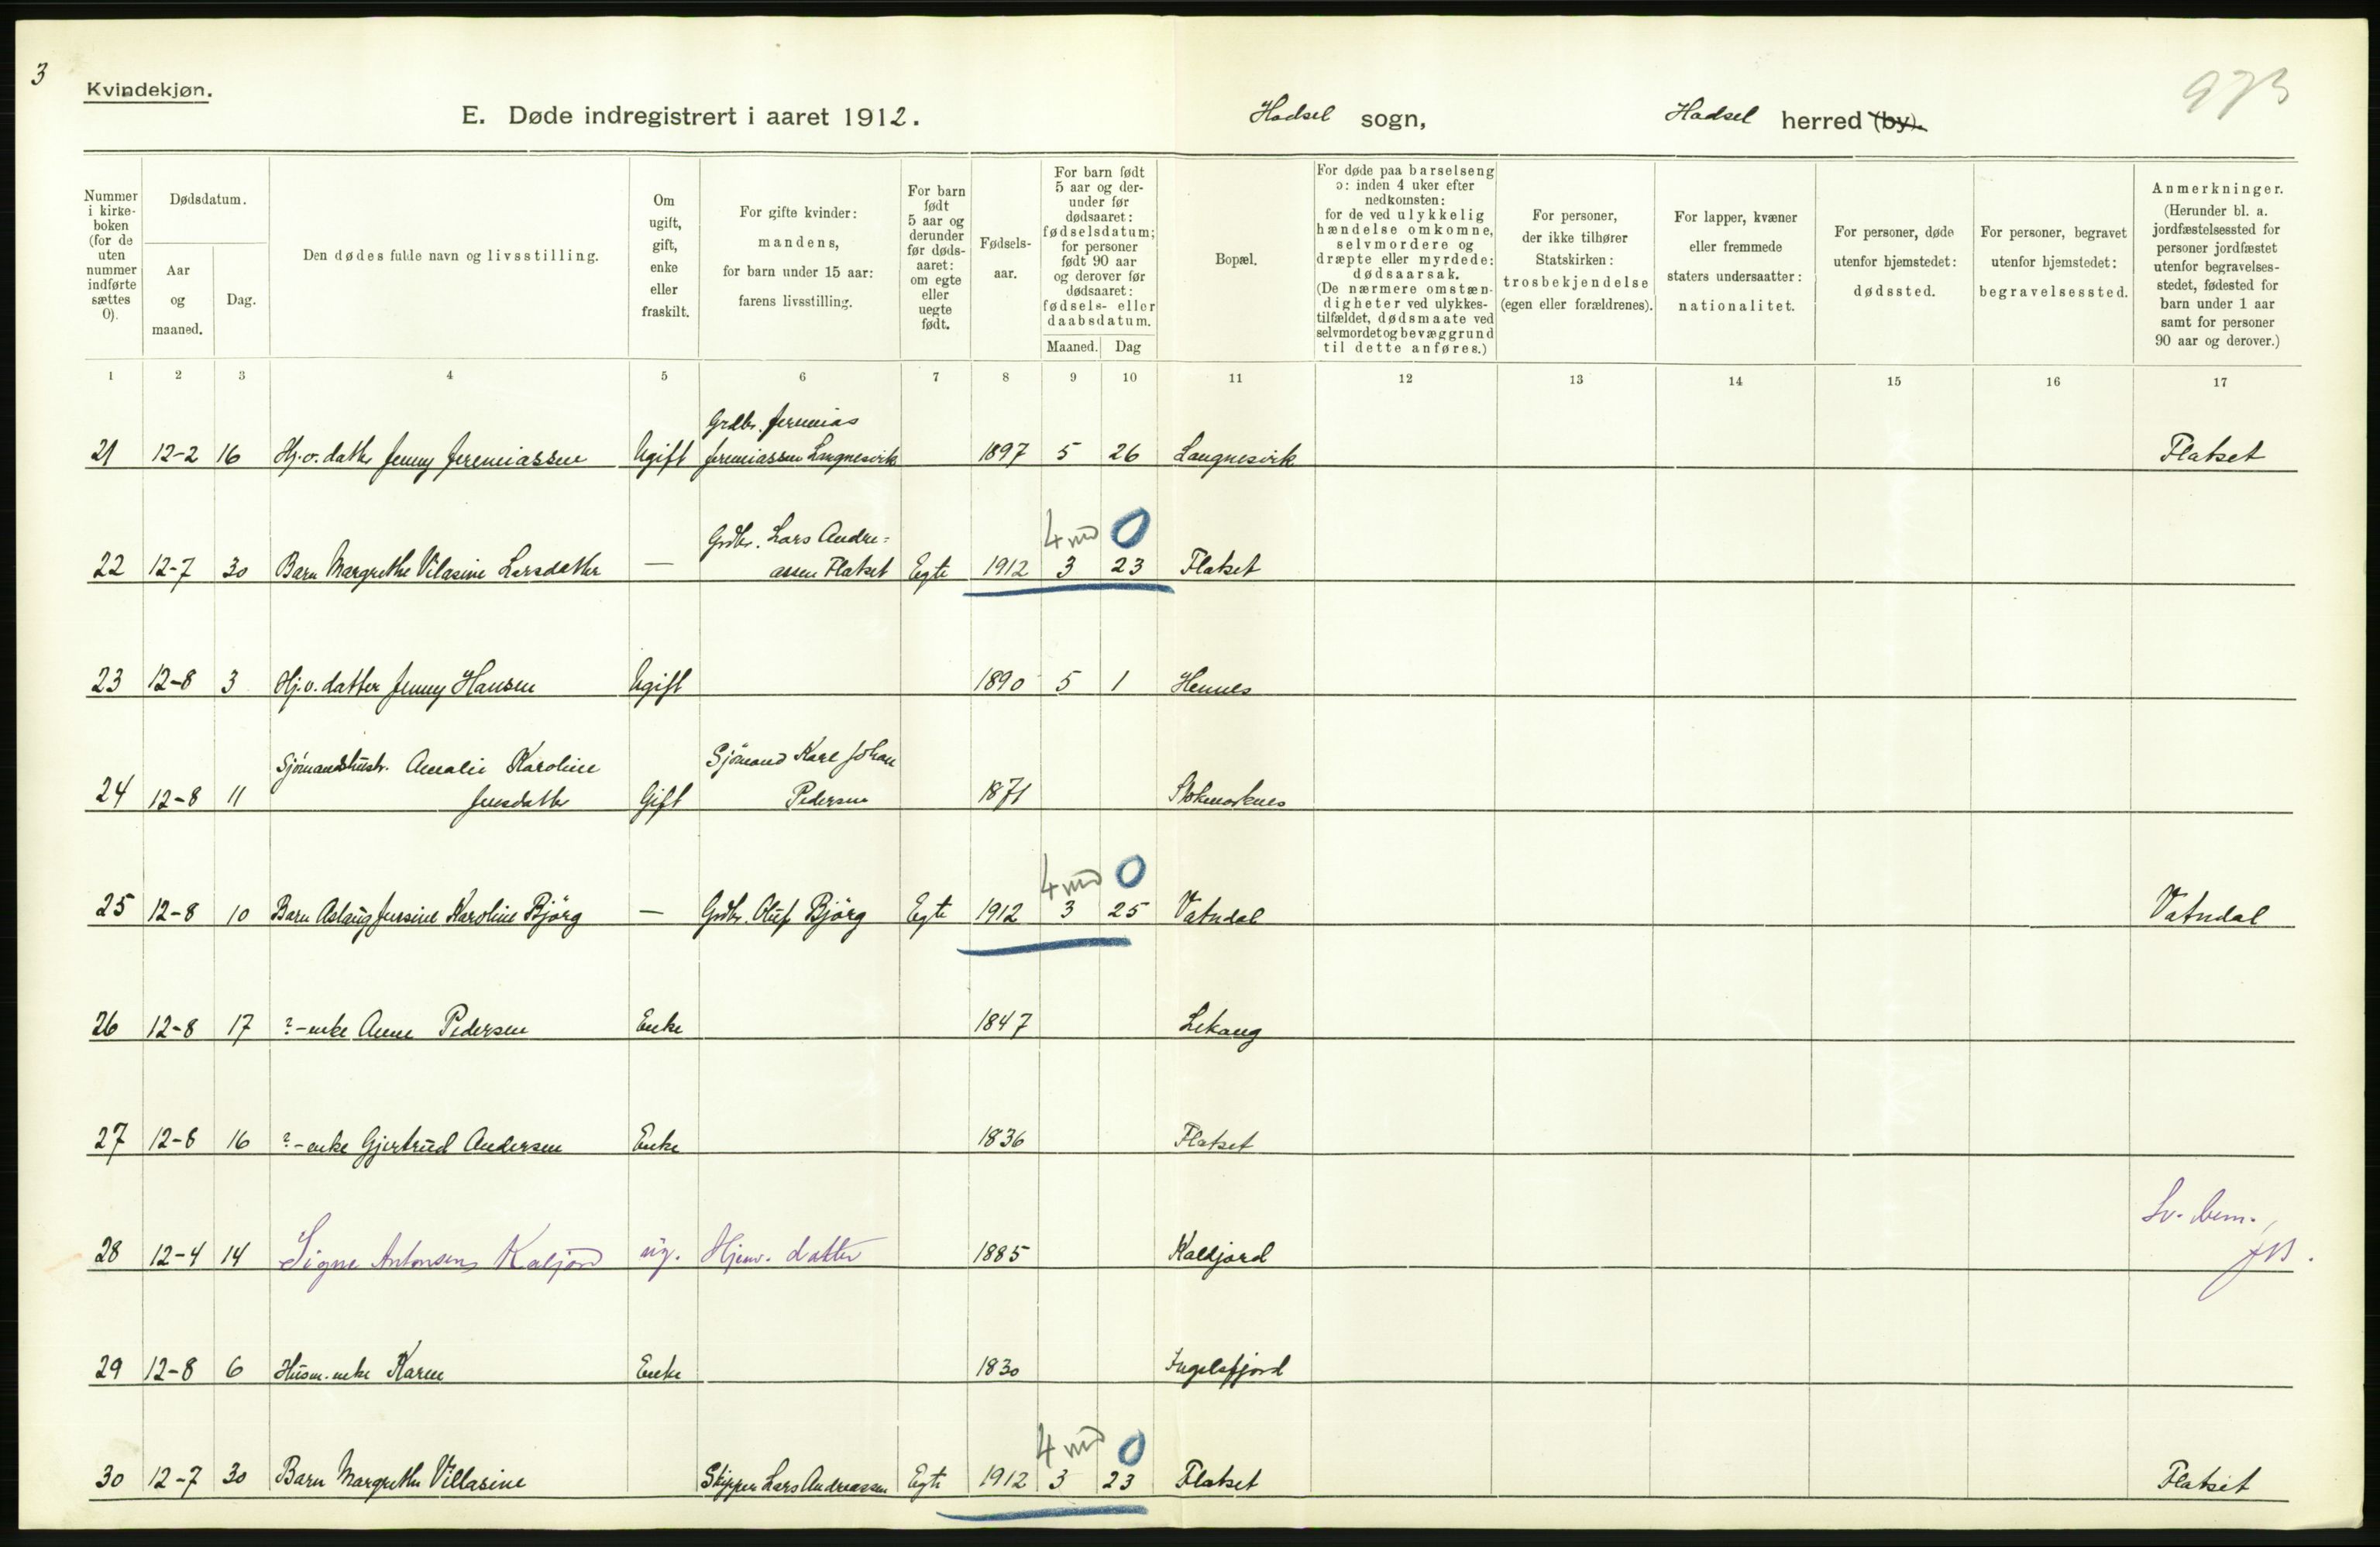 3
Kvindekjøn.
E. Døde indregistrert i aaret 1912.
Hadsel sogn,
Hadsel herred (by).
973
Nummer i kirkeboken (for de uten nummer indførte sættes 0).
Dødsdatum.
Aar og maaned.
Dag.
Den dødes fulde navn og livsstilling.
Om ugift, gift, enke eller fraskilt.
For gifte kvinder: mandens, for barn under 15 aar: farens livsstilling.
For barn født 5 aar og derunder før dødsaaret: om egte eller uegte født.
Fødselsaar.
For barn født 5 aar og derunder før dødsaaret: fødselsdatum; for personer født 90 aar og derover før dødsaaret: fødsels- eller daabsdatum.
Maaned. Dag
Bopæl.
For døde paa barselseng ɔ: inden 4 uker efter nedkomsten: for de ved ulykkelig hændelse omkomne, selvmordere og dræpte eller myrdede: dødsaarsak. (De nærmere omstændigheter ved ulykkestilfældet, dødsmaate ved selvmordet og bevæggrund til dette anføres.)
For personer, der ikke tilhører Statskirken: trosbekjendelse (egen eller forældrenes).
For lapper, kvæner eller fremmede staters undersaatter: nationalitet.
For personer, døde utenfor hjemstedet: dødssted.
For personer, begravet utenfor hjemstedet: begravelsessted.
Anmerkninger. (Herunder bl. a. jordfæstelsessted for personer jordfæstet utenfor begravelsesstedet, fødested for barn under 1 aar samt for personer 90 aar og derover.)
1 2 3 4 5 6 7 8 9 10 11 12 13 14 15 16 17
Grdbr. Jeremias
21 12-2 16 Hj.v. datter Jenny Jeremiassen Ugift Jeremiassen Langnesvik 1897 5 26 Langnesvik Flatset
Grdbr. Lars Andre= 4 md 0
22 12-7 30 Barn Margrethe Vilasine Larsdatter — assen Flatset Egte 1912 3 23 Flatset
23 12-8 3 Hj.v. datter Jenny Hansen Ugift 1890 5 1 Hennes
Sjömandshustr. Amalie Karoline Sjömand Karl Johan
24 12-8 11 Jensdatter Gift Pedersen 1871 Stokmarknes
4 md 0
25 12-8 10 Barn Aslaug Jensine Karoline Björg — Grdbr. Oluf Björg Egte 1912 3 25 Vatndal Vatndal
26 12-8 17 ?-enke Anne Pedersen Enke 1847 Lekang
27 12-8 16 ?-enke Gjertrud Andersen Enke 1836 Flatset
28 12-4 14 Signe Antonsen Kaljord ug. Hjemv. datter 1885 Kaldjord
29 12-8 6 Husm. enke Karen Enke 1830 Ingelsfjord
4 md 0
30 12-7 30 Barn Margrethe Villasine Skipper Lars Andreassen Egte 1912 3 23 Flatset Flatset